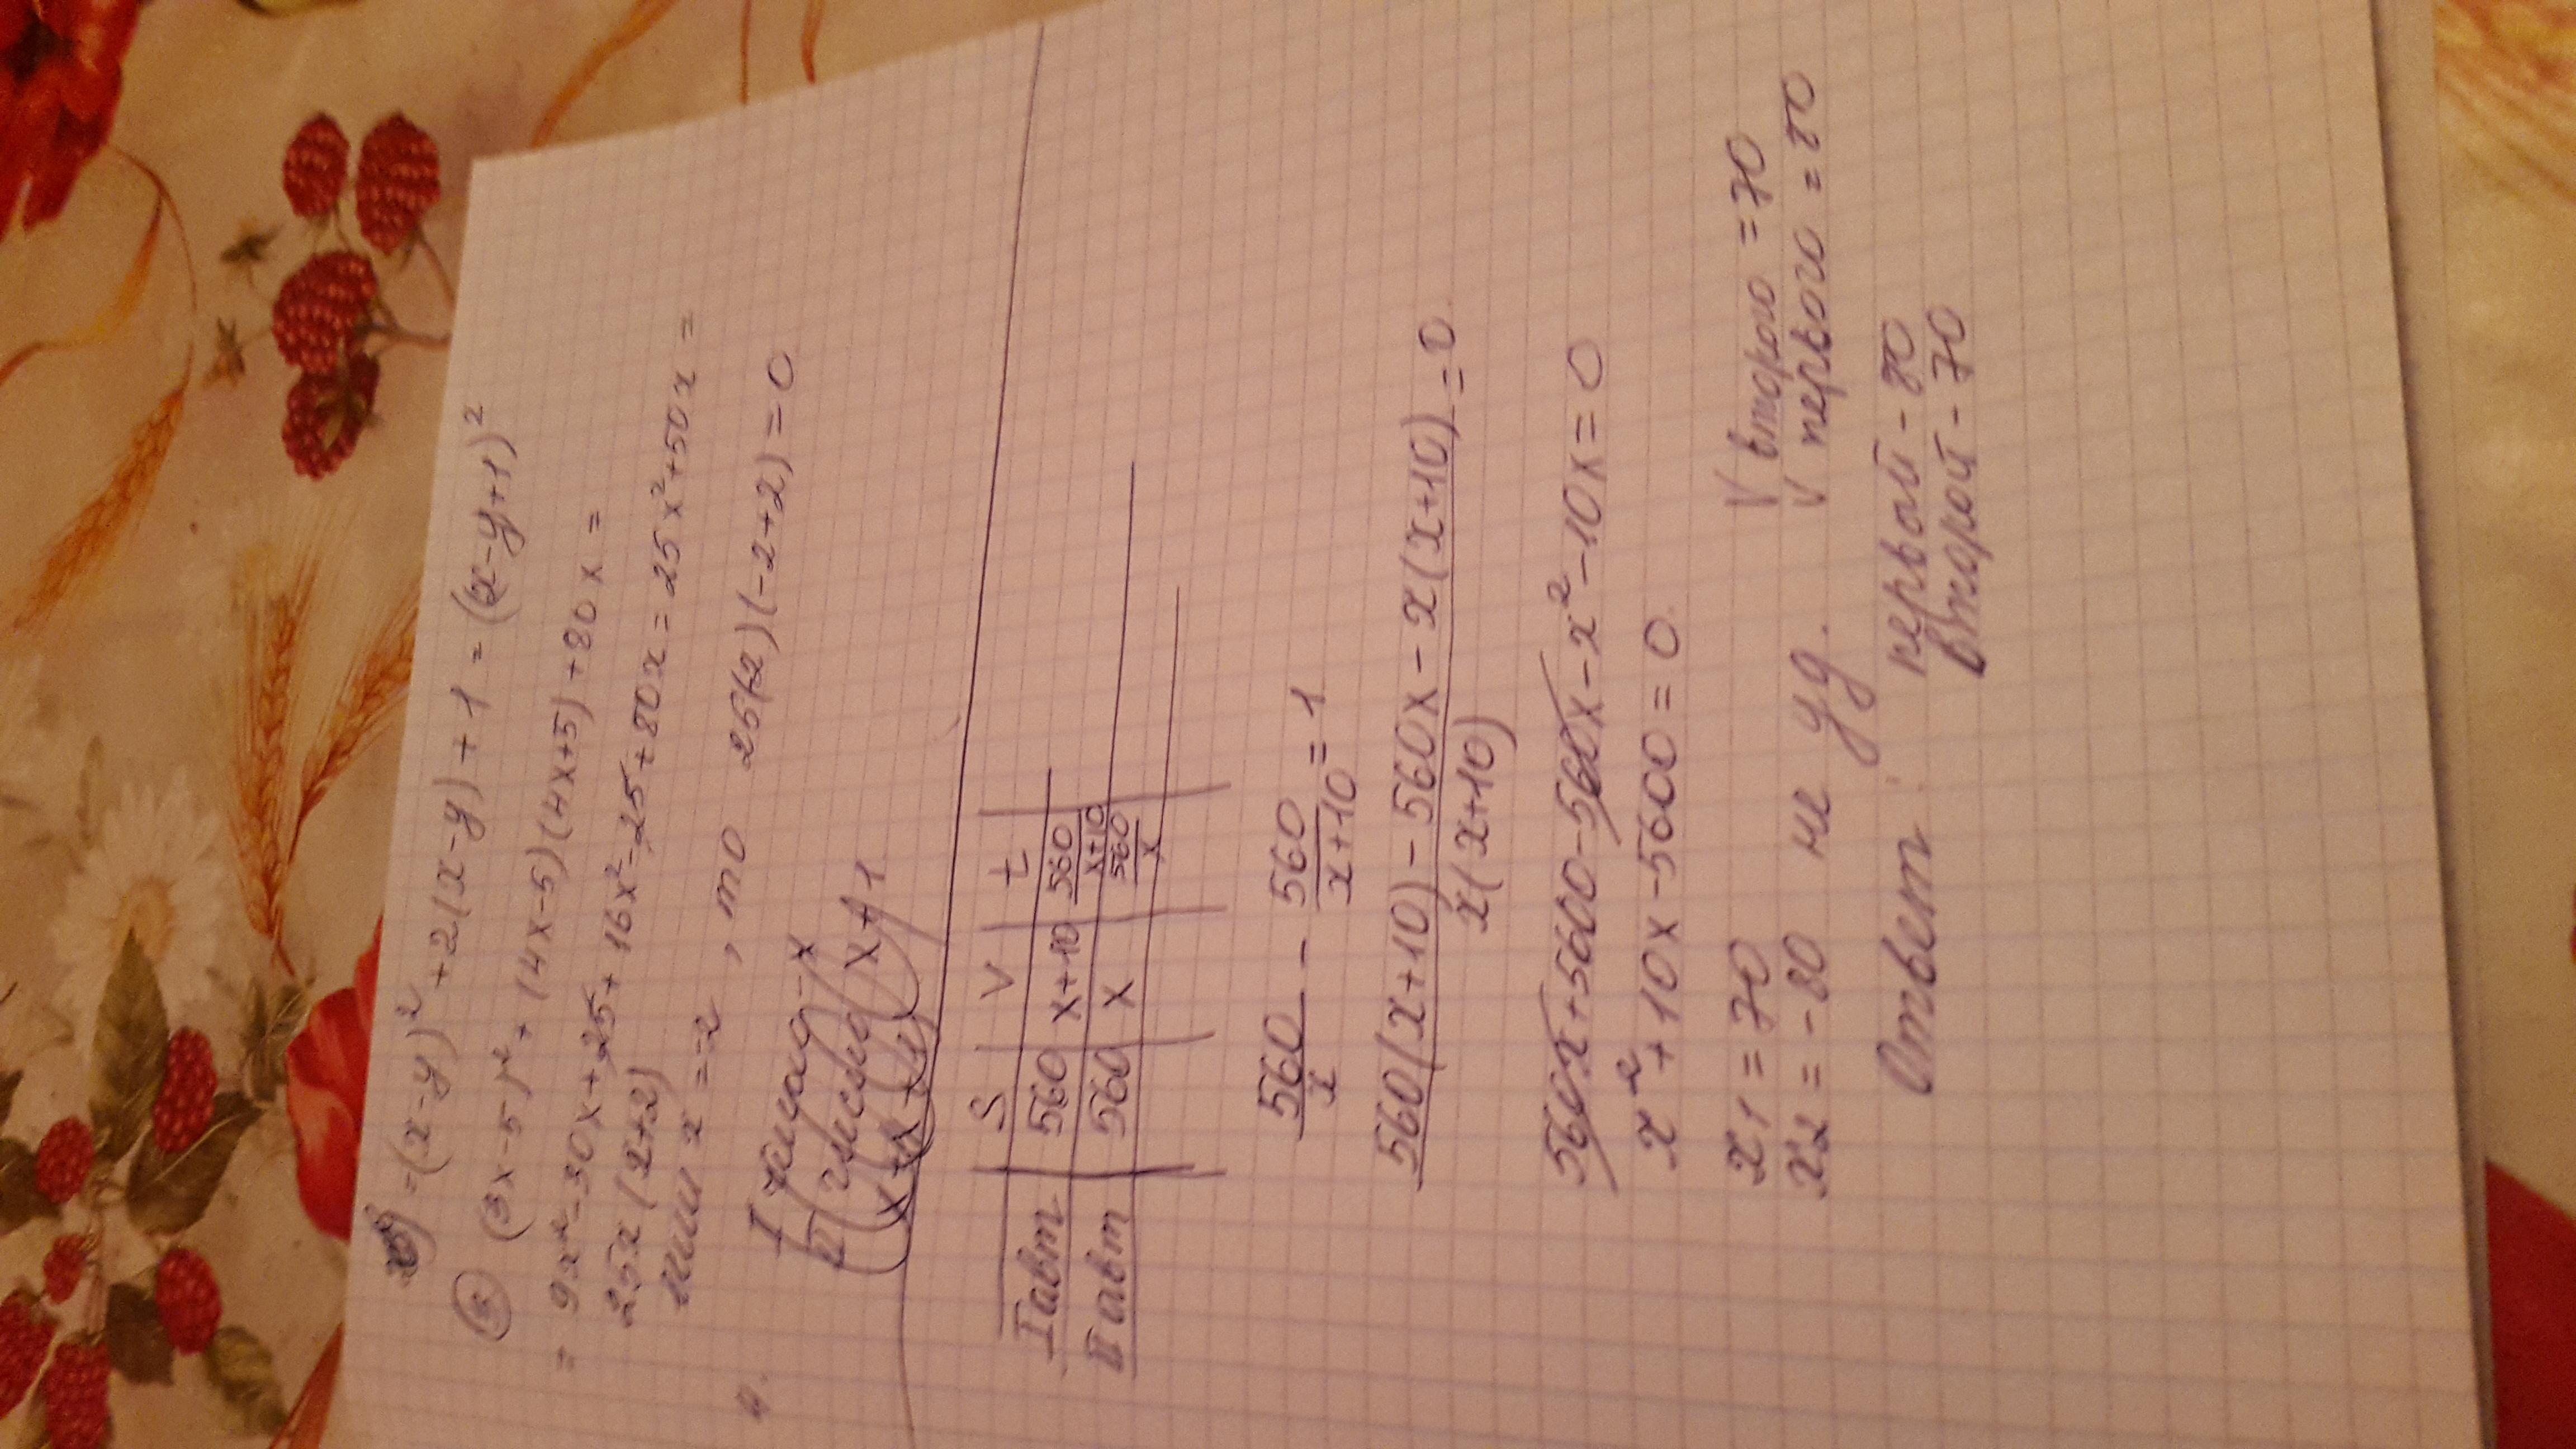 =(x-y)²+2(x-y)+1=(x-y+1)²
(3x-5)²+(4x-5)(4x+5)+80x=
=9x²-30x+25+16x²-25+80x=25x²+50x=
25x(x+2)
x=-2, то 25(-2)(-2+2)=0
4.
x
x+1
S V t
I авт 560 x+10 560/x+10
II авт 560 x 560/x
560/x - 560/x+10 = 1
560(x+10)-560x-x(x+10)/x(x+10) =0
560x+5600-560x-x²-10x=0
x²+10x-5600=0
x1=70 V второго=70
x2=-80 не уд. V первого=80
Ответ: первой-80
второй-70